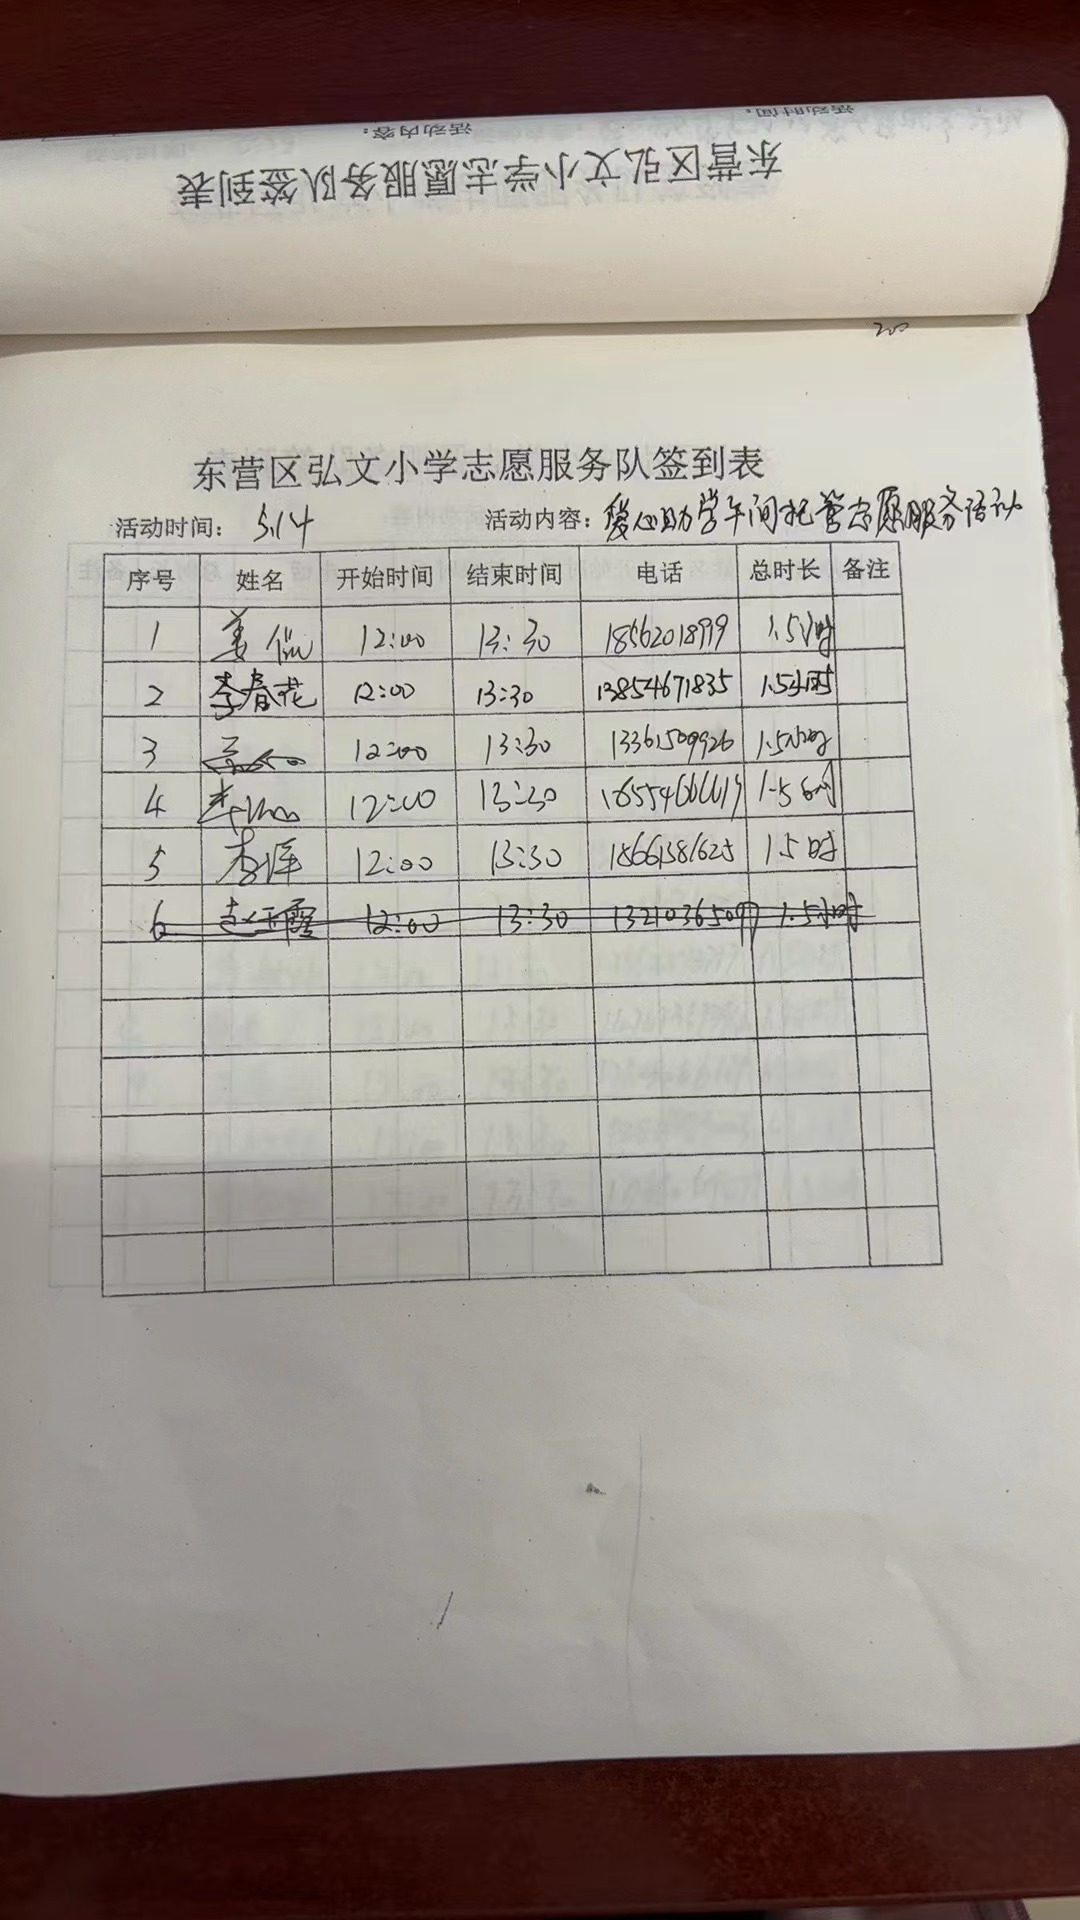 活动时间:
活动内容:
东营区弘文小学志愿服务队签到表
200
东营区弘文小学志愿服务队签到表
活动时间: 5.14 活动内容: 爱心助学午间托管志愿服务活动
序号 姓名 开始时间 结束时间 电话 总时长 备注
1 姜 12:00 13:30 18562018999 1.5小时
2 李春花 12:00 13:30 13854671835 1.5小时
3 12:00 13:30 13361509926 1.5小时
4 12:00 13:30 18554666619 1.5
5 李萍 12:00 13:30 18661381625 1.5时
6 赵玉霞 12:00 13:30 13210365097 1.5小时